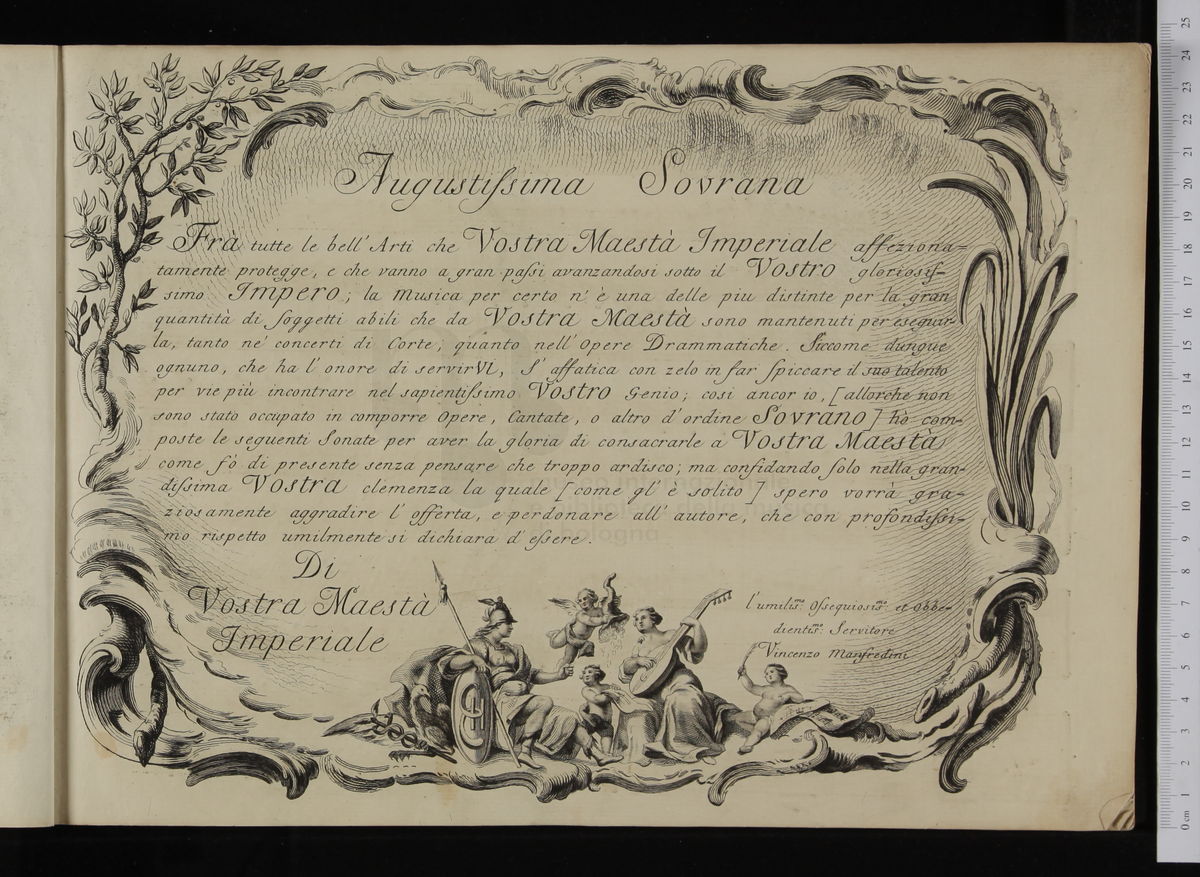 Augustiſsima Sovrana
Frà tutte le bell' Arti che Vostra Maestà Imperiale affeziona=
tamente protegge, e che vanno a gran paſsi avanzandosi sotto il Vostro gloriosiſ-
simo Impero; la Musica per certo n' è una delle piu distinte per la gran
quantità di ſoggetti abili che da Vostra Maestà sono mantenuti per eseguir-
la, tanto ne' concerti di Corte, quanto nell' Opere Drammatiche. Siccome dunque
ognuno, che ha l' onore di servirVI, s' affatica con zelo in far ſpiccare il suo talento
per vie più incontrare nel sapientiſsimo Vostro Genio; cosi ancor io, [allorche non
sono stato occupato in comporre Opere, Cantate, o altro d' ordine Sovrano] hò com-
poste le seguenti Sonate per aver la gloria di consacrarle à Vostra Maestà
come fò di presente senza pensare che troppo ardisco; ma confidando ſolo nella gran-
diſsima Vostra clemenza la quale [come gl' è solito] spero vorrà gra-
ziosamente aggradire l' offerta, e perdonare all' autore, che con profondiſsi-
mo rispetto umilmente si dichiara d' eſsere.
Di
Vostra Maestà
Imperiale
l'umilis:mo Oſsequiosis:mo et obbe-
dientis:mo Servitore
Vincenzo Manfredini
museo internazionale
bologna
0 cm 1 2 3 4 5 6 7 8 9 10 11 12 13 14 15 16 17 18 19 20 21 22 23 24 25